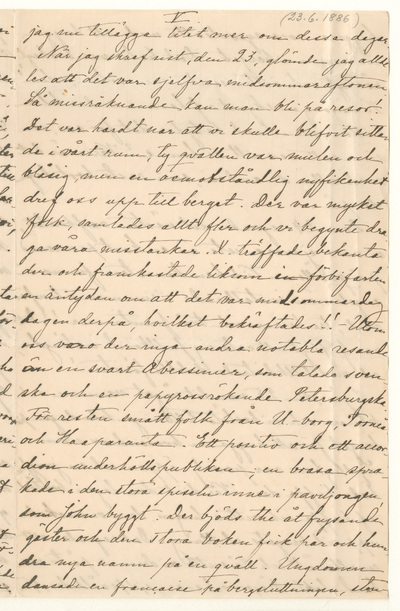 V
(23.6.1886)
jag nu tillägga litet mer om dessa dagar.
När jag skref sist, den 23, glömde jag alldeles
les att det var sjelfva midsommaraftonen.
Så missräknande kan man bli på resor!
Det var hardt när att vi skulle blifvit sittan-
de i vårt rum, ty qvällen var mulen och
blåsig, men en oemotståndlig nyfikenhet
dref oss upp till berget. Der var mycket
folk, samlades allt fler och vi begynte dra-
ga våra misstankar. Vi träffade bekanta
der och framkastade liksom i förbifarten
en antydan om att det var midsommardag
dagen derpå, hvilket bekräftades!! - Utom
oss voro der inga andra notabla resande
än en svart Abessinier, som talade sven-
ska och en papyrossrökande Petersburgska
För resten smått folk från U-borg, Torneå
och Haaparanta. Ett positiv och ett accor-
dion underhöllo publiken; en brasa spra-
kade i den stora spiseln inne i paviljongen
som John byggt. Der bjöds thé åt frysande
gäster och den stora boken fick par och hun-
dra nya namn på en qväll. Ungdomen
dansade en française på bergsluttningen,